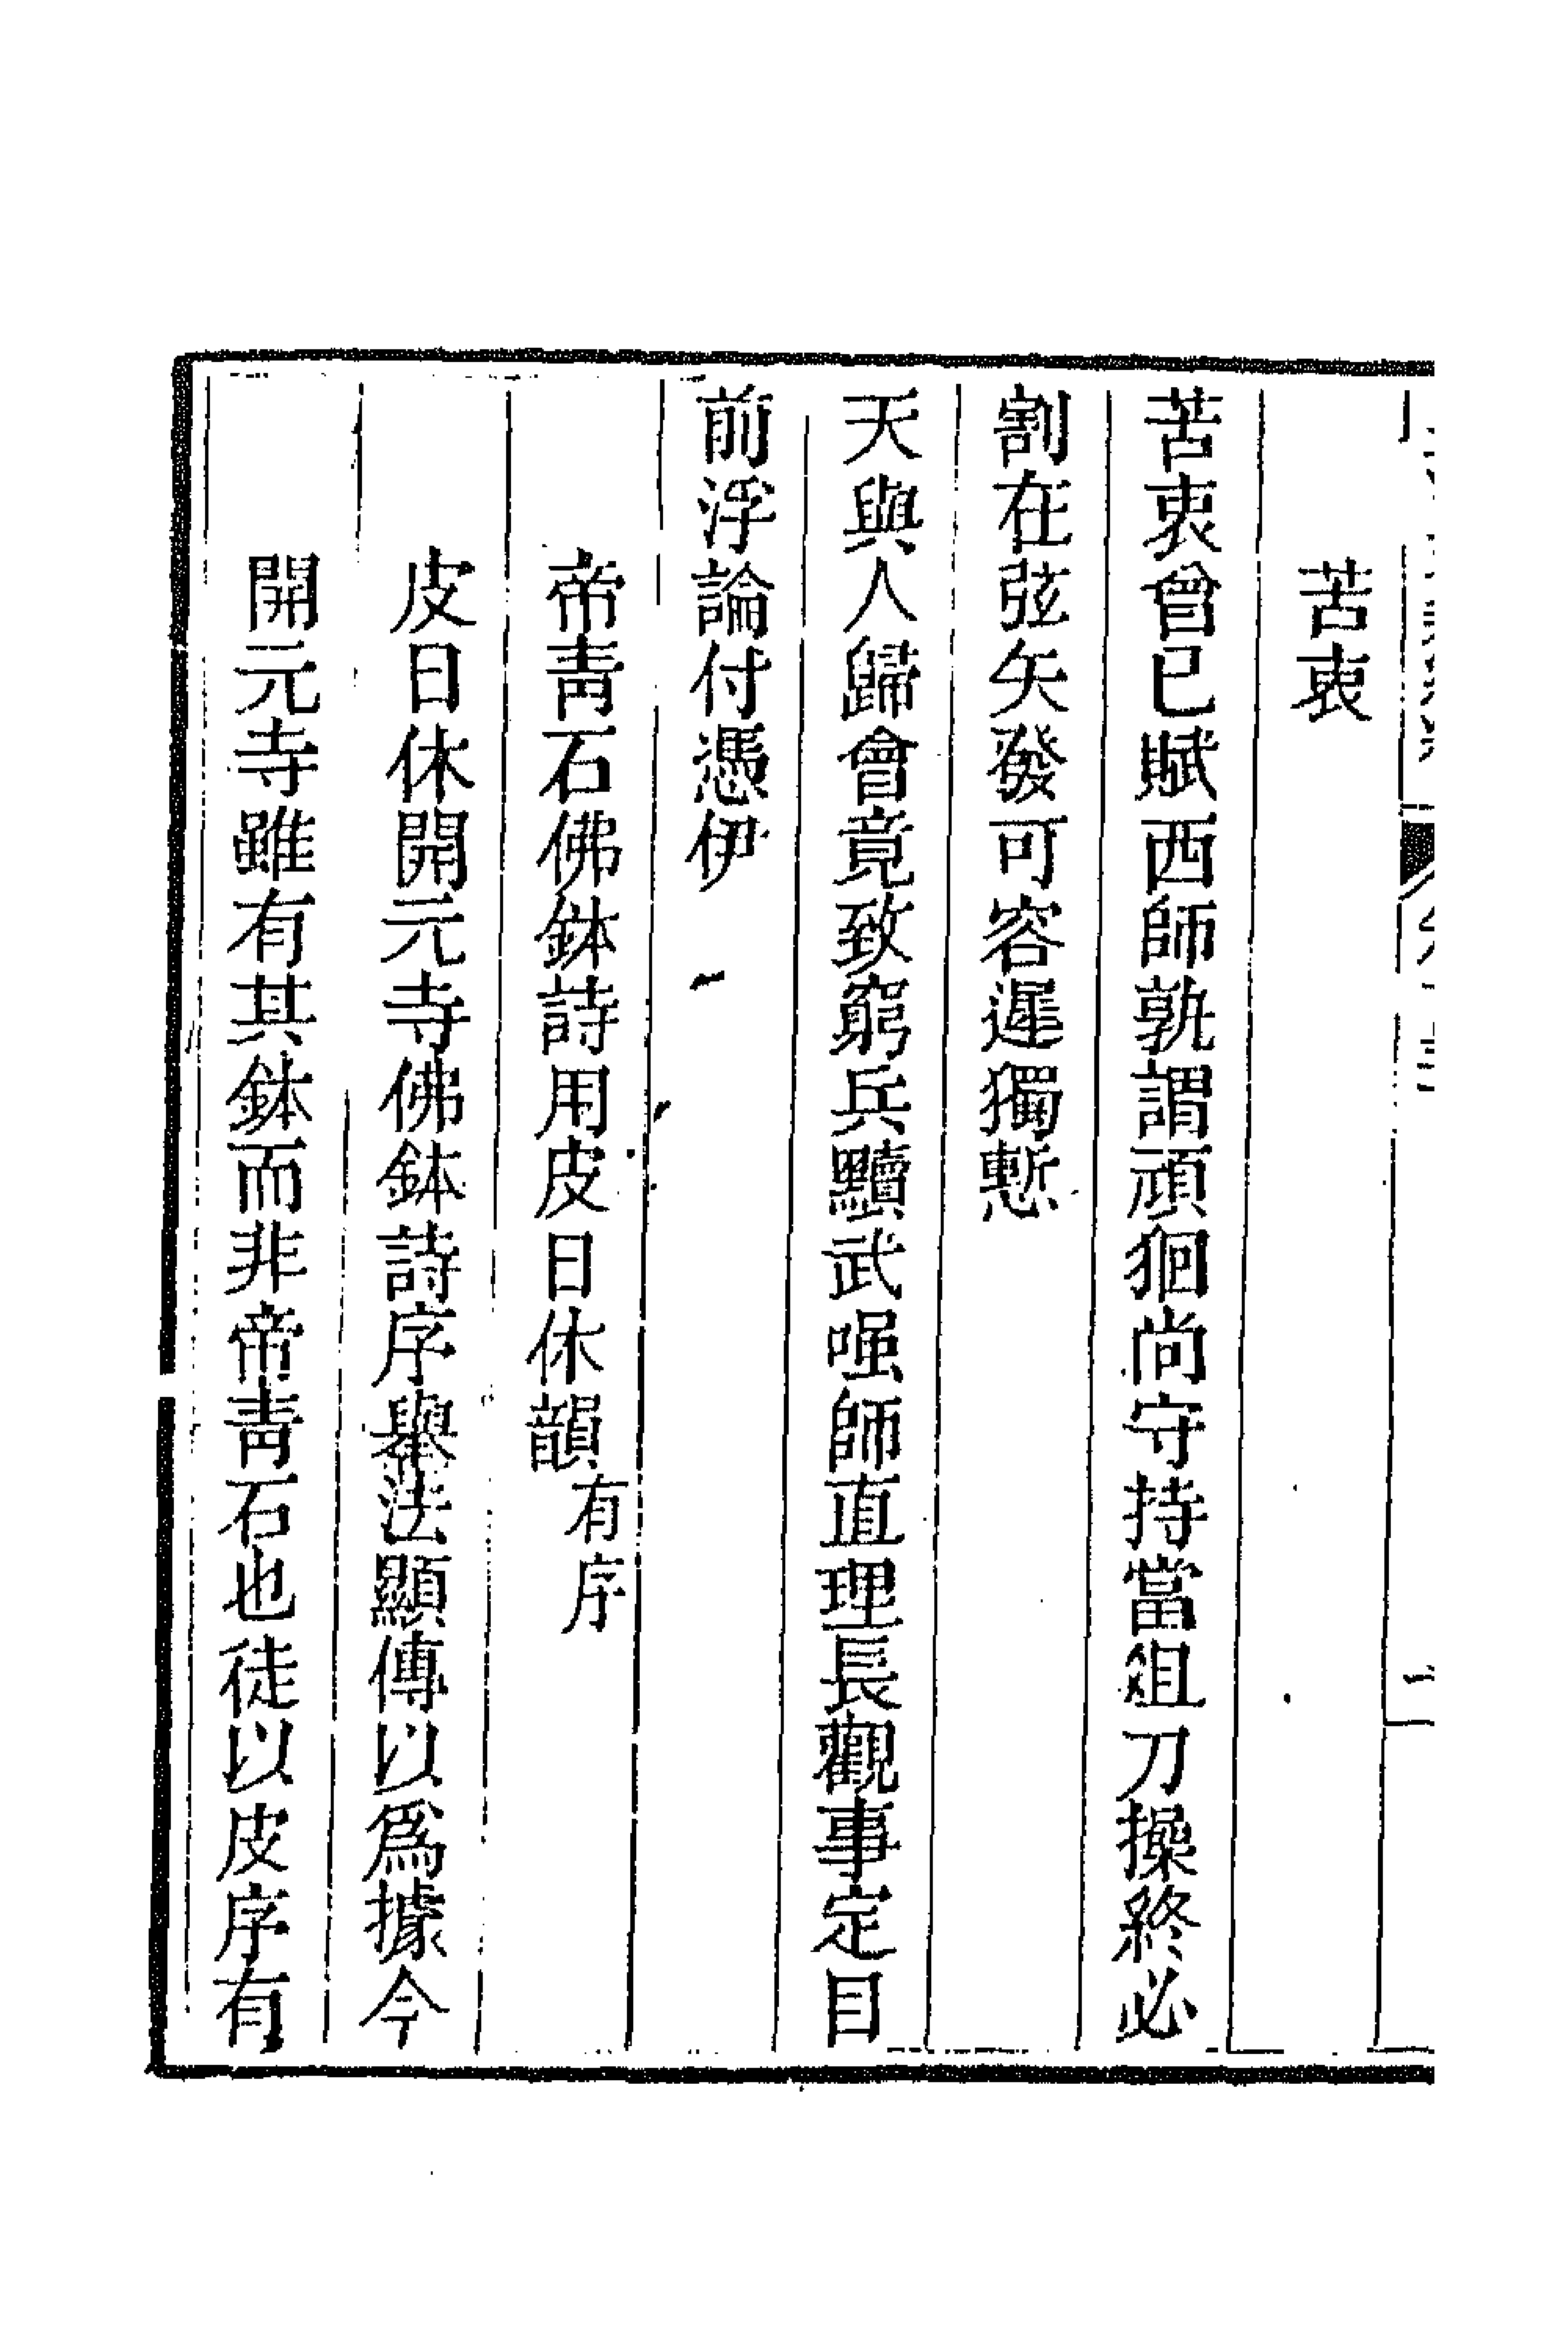 苦衷
苦衷曾已賦西師孰謂頑徊尚守持當俎刀操終必
割在弦矢發可容遲獨慙
天與人歸會竟致窮兵黷武嗤師直理長觀事定目
前浮論付憑伊
帝青石佛鉢詩用皮日休韻有序
皮日休開元寺佛鉢詩序舉法顯傳以為據今
開元寺雖有其鉢而非帝青石也徒以皮序有